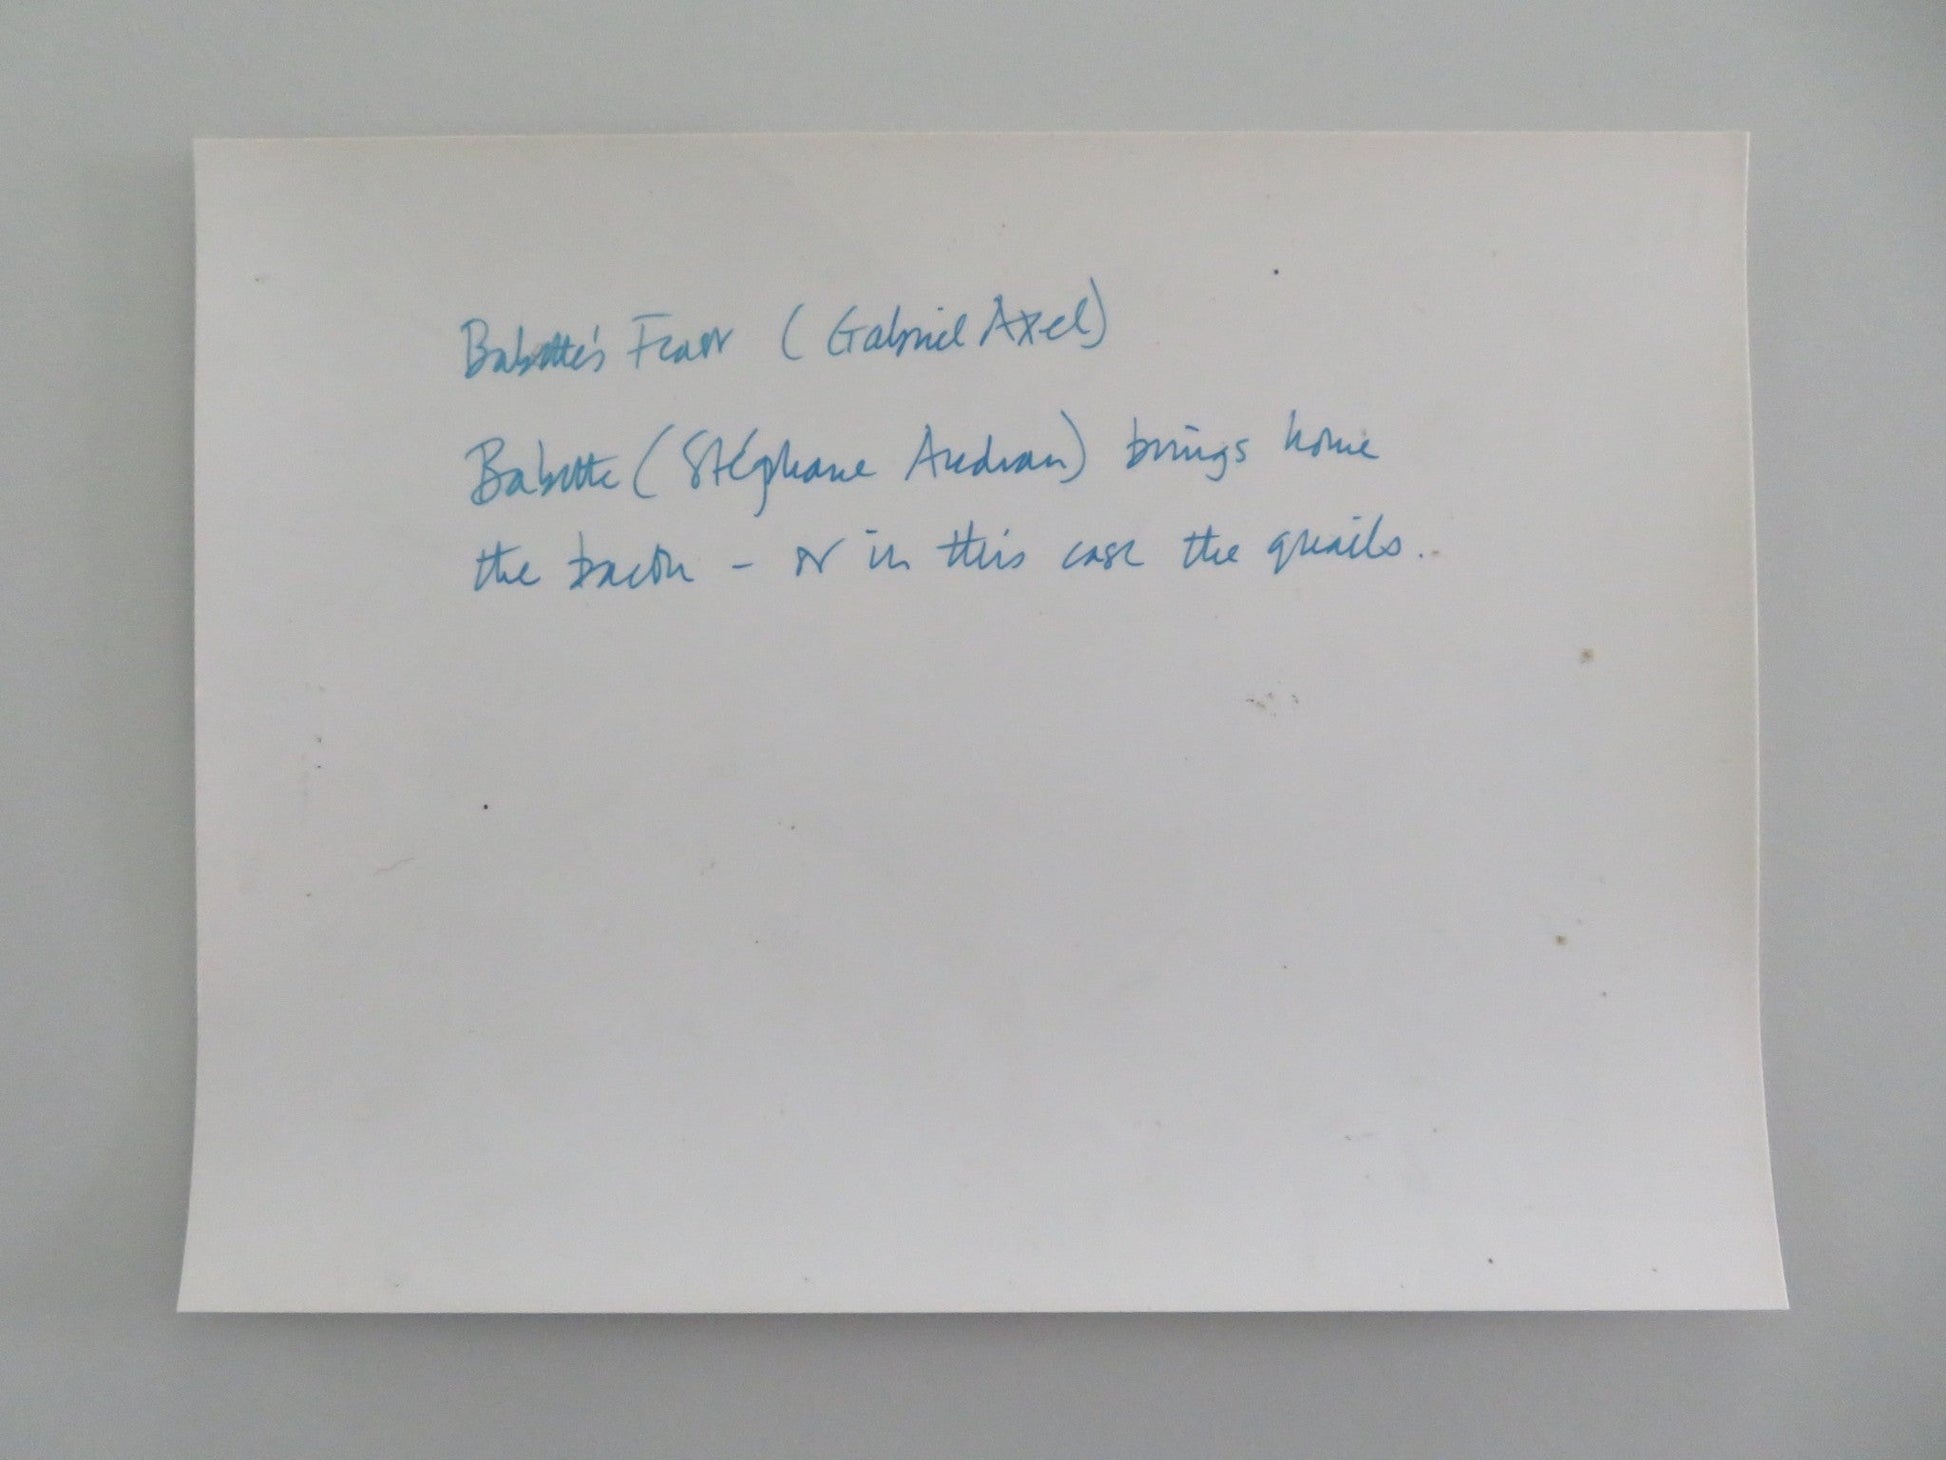 Babette's Feast (Gabriel Axel)
Babette (Stéphane Audran) brings home
the bacon - or in this case the quails..